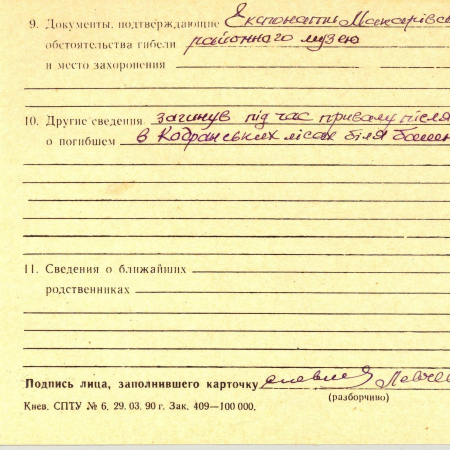 9. Документы, подтверждающие Експонати Макарівсь
обстоятельства гибели районного музею
и место захоронения
10. Другие сведения загинув під час привалу після
о погибшем в Кодранських лісах біля
11. Сведения о ближайших
родственниках
Подпись лица, заполнившего карточку
(разборчиво)
Киев. СПТУ № 6. 29. 03. 90 г. Зак. 409—100 000.